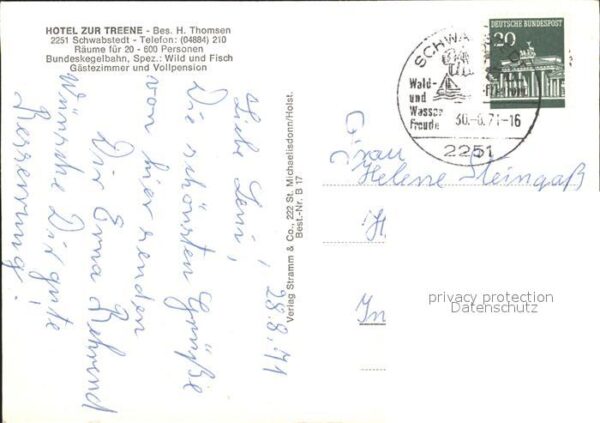 HOTEL ZUR TREENE - Bes. H. Thomsen
2251 Schwabstedt - Telefon: (04884) 210
Räume für 20 - 600 Personen
Bundeskegelbahn, Spez.: Wild und Fisch
Gästezimmer und Vollpension
28.8.71
Liebe Leni,
Die schönsten Grüße
von hier senden
Dir Erna Behrend
Wünsche Dir gute
Besserung!
Verlag Stramm & Co., 222 St. Michaelisdonn/Holst.
Best.-Nr. B 17
DEUTSCHE BUNDESPOST
20
Wald-
und
Wasser
Freude
30.-8.71-16
2251
Frau
Helene Steingaß
In
privacy protection
Datenschutz